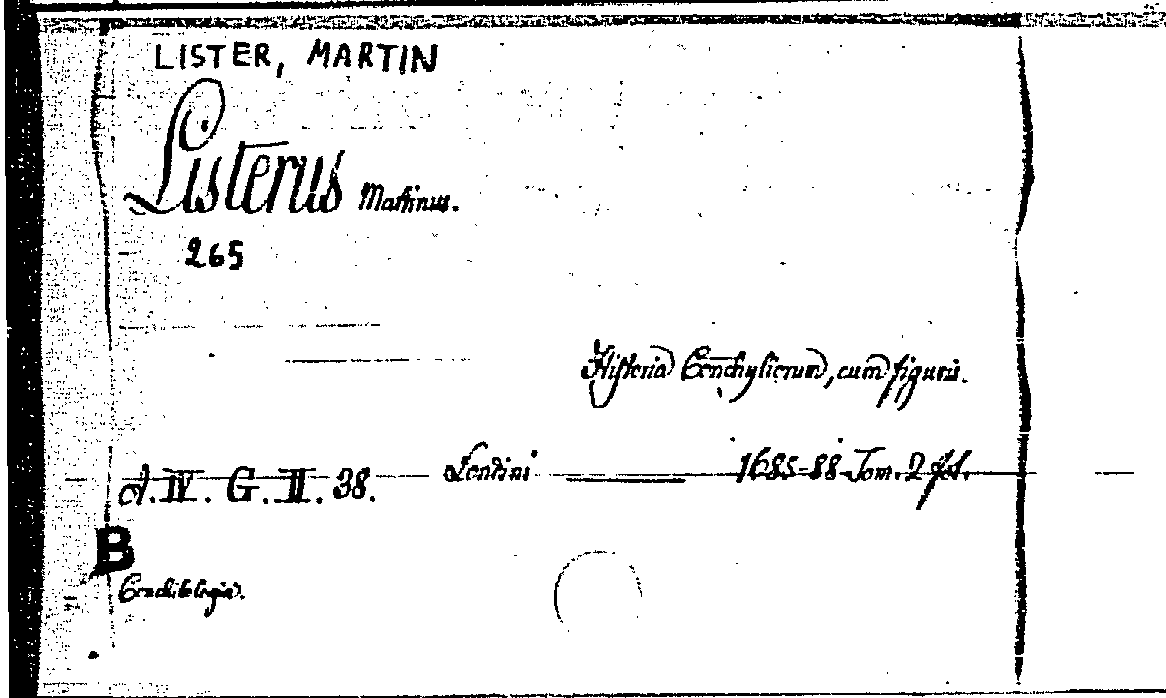 LISTER, MARTIN
Listerus Martinus.
265
Historia Conchyliorum, cum figuris.
d. IV. G. II. 38. Londini 1685-88 Tom. 2 fol.
B
Conchilologia.